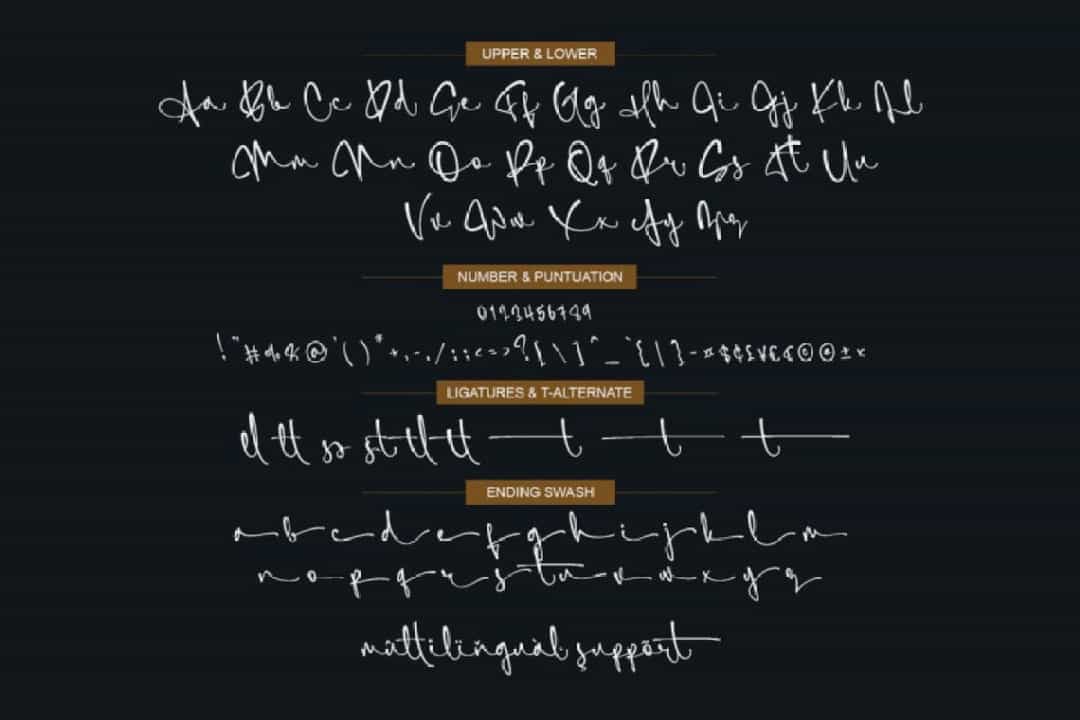 UPPER & LOWER
Aa Bb Cc Dd Ee Ff Gg Hh Ii Jj Kk Ll
Mm Nn Oo Pp Qq Rr Ss Tt Uu
Vv Ww Xx Yy Zz
NUMBER & PUNTUATION
0123456789
!"#%&@'()*+,-./:;<=>?[\]^_`{|}-¤$¢£¥€
LIGATURES & T-ALTERNATE
el tt ss st tl tt t t t
ENDING SWASH
a b c d e f g h i j k l m
n o p q r s t u v w x y z
multilingual support